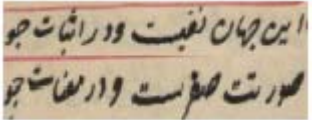 این جهان نفیست ودر اثبات جو
صورتت صفرست ودر معنات جو